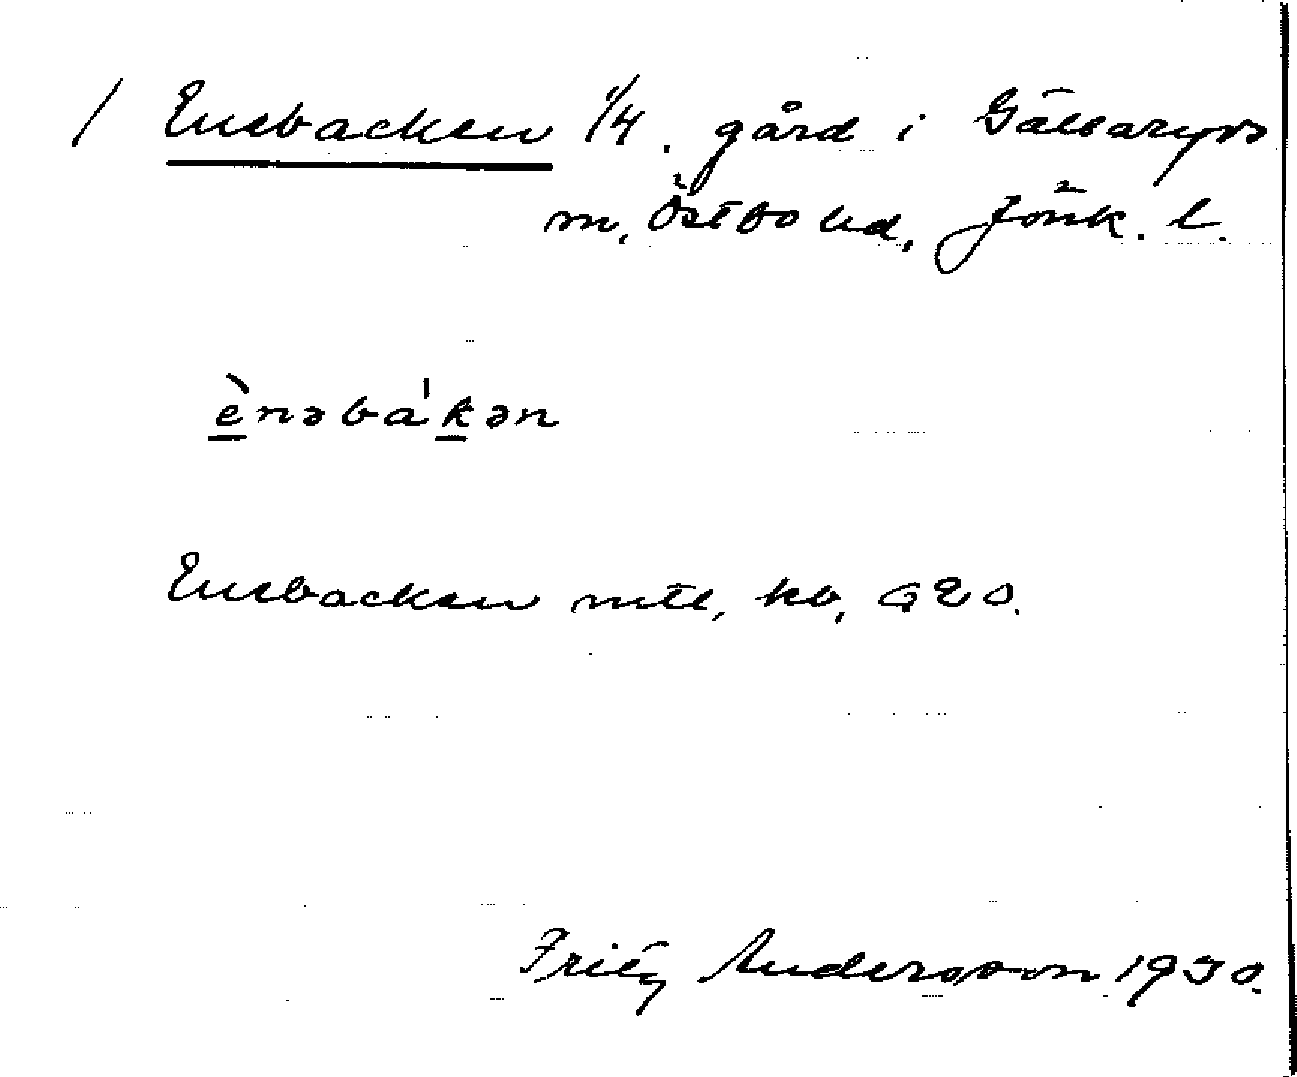 / Enebacken 1/4. gård i Gällaryds
sn, Östbo hd, Jönk. l.
ènəbaˈkən
Enebacken mtl, kb, 920.
Fritz Andersson 1930.